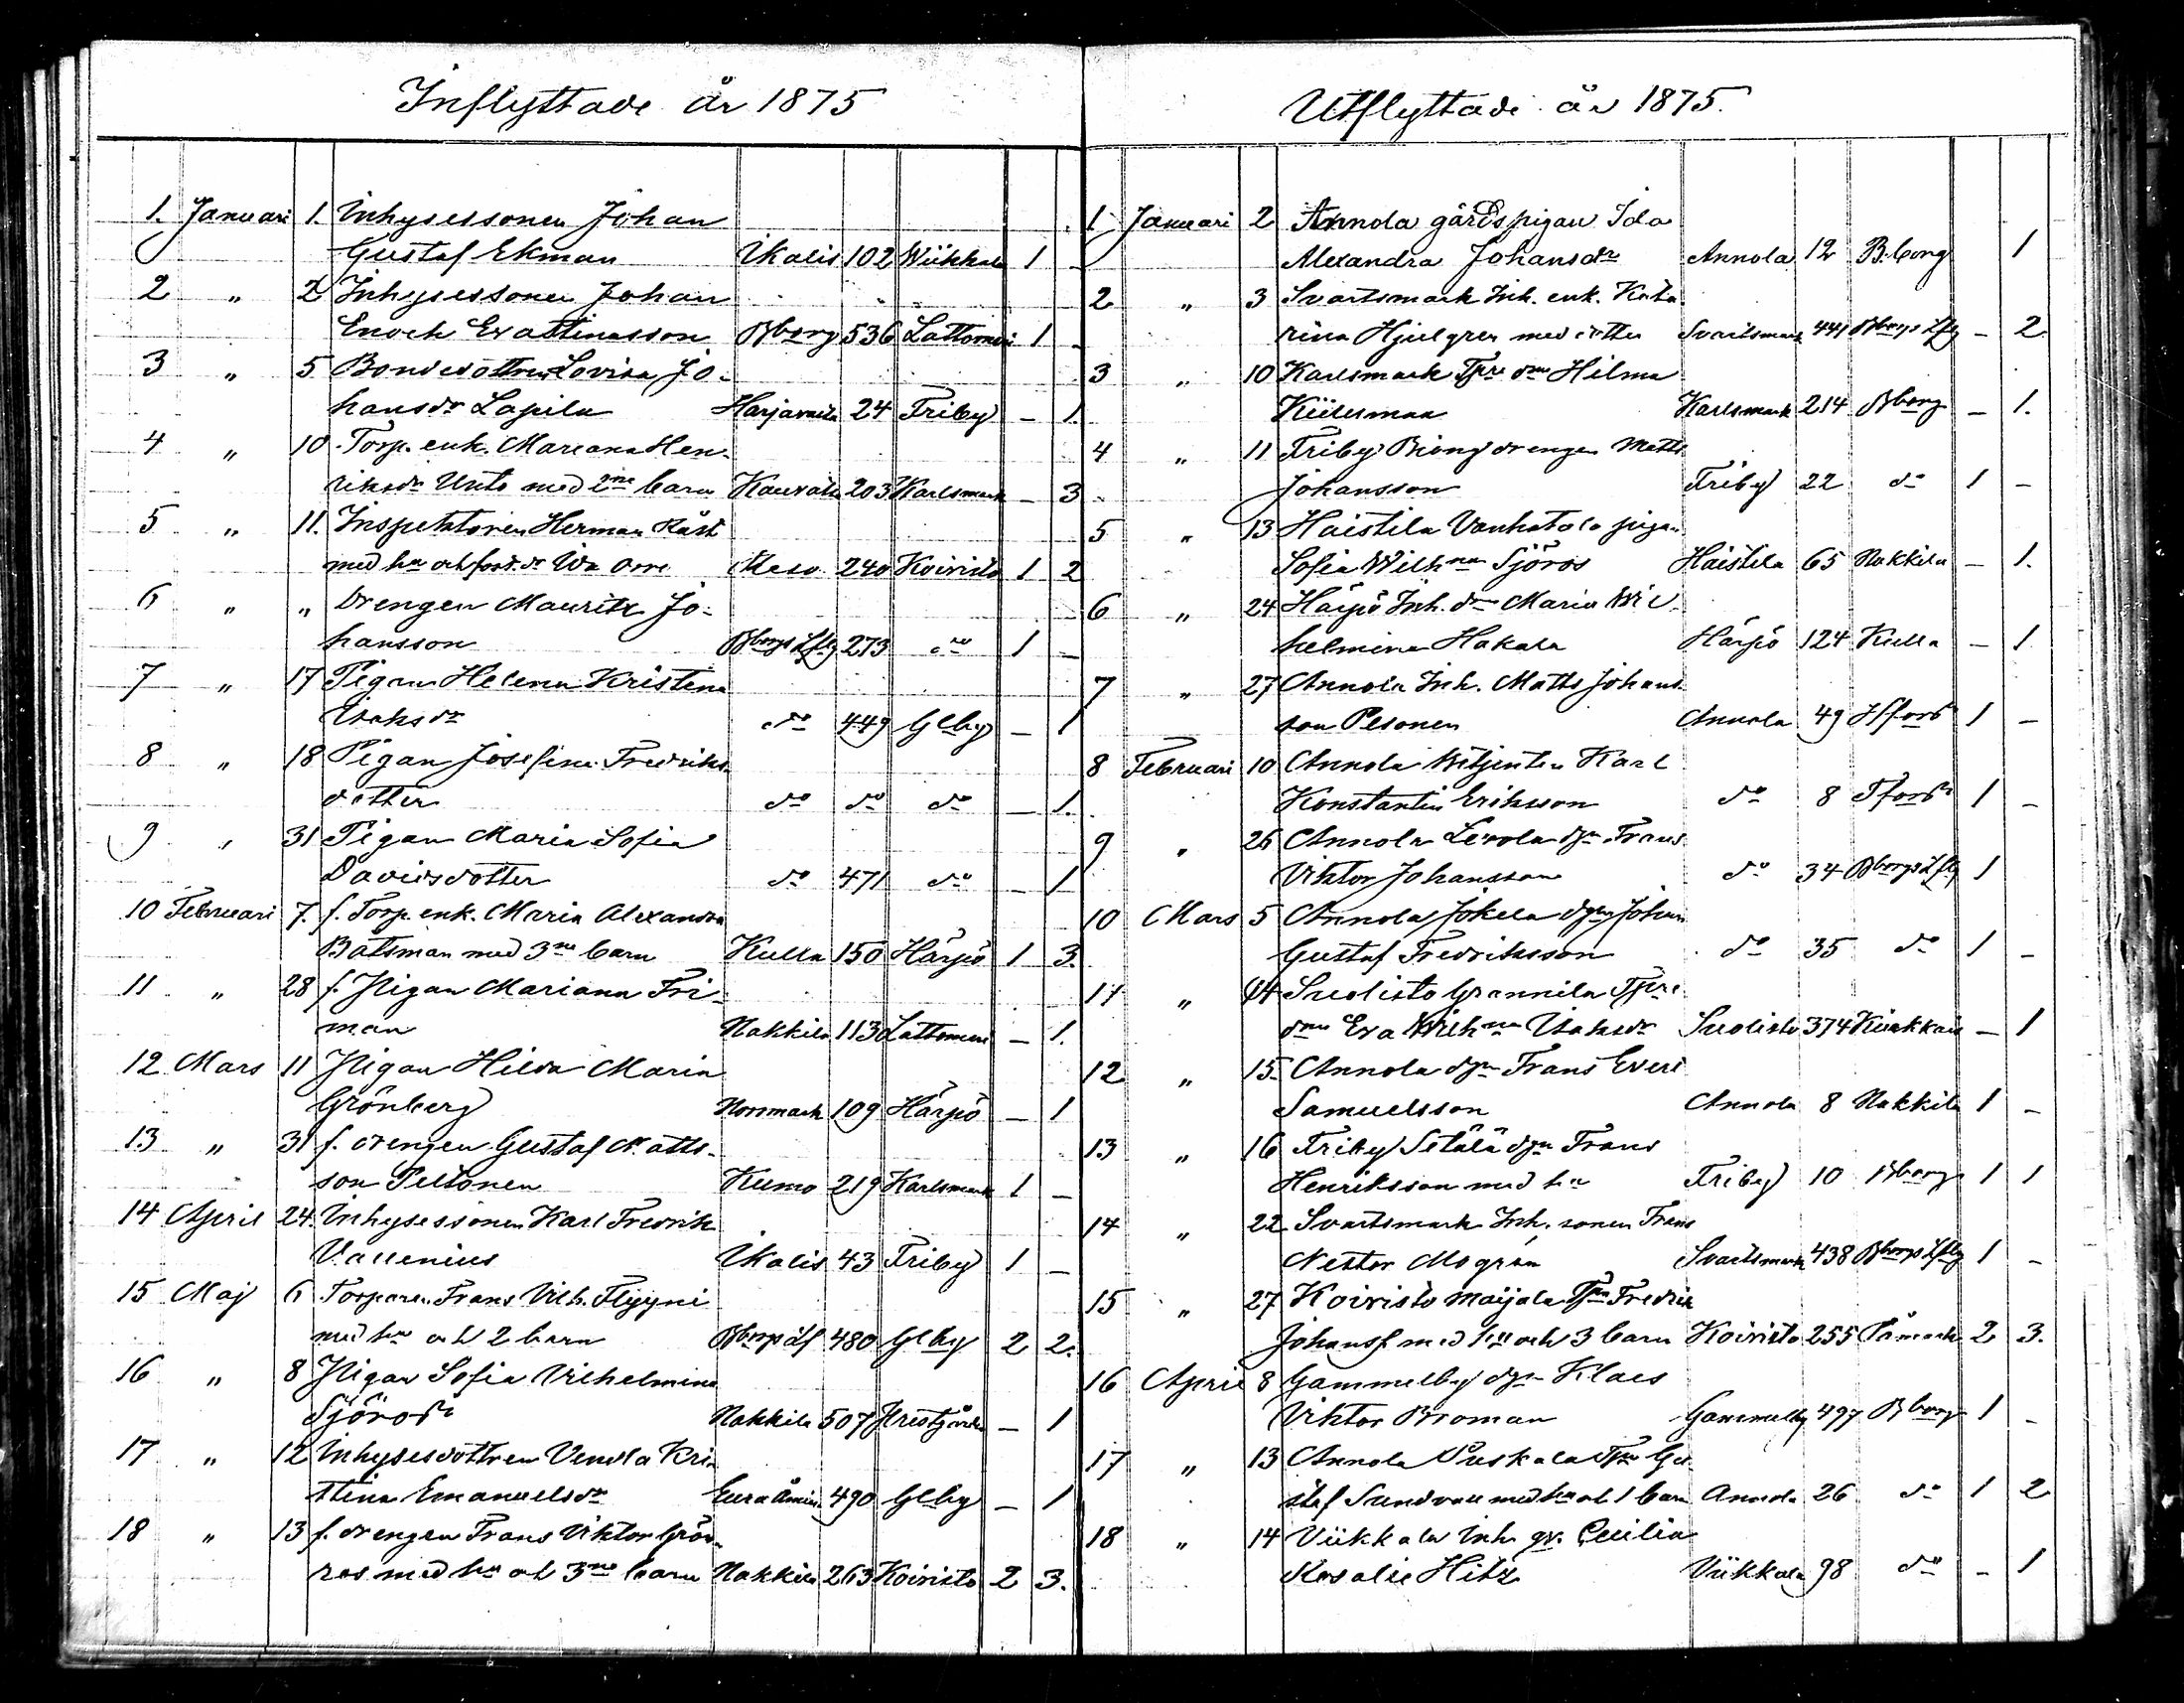 Inflyttade år 1875
1. Januari 1. Inhysessonen Johan
Gustaf Ekman Ikalis 102 Wiikkala 1 –
2 „ 2 Inhysessonen Johan
Enoch Bborg 536 Lattomeri 1 –
3 „ 5 Bondedottren Lovisa Jo-
hansdr Lapila Harjavalta 24 Friby – 1.
4 „ 10 Torp. enk. Mariana Hen-
riksdr Unto med 2ne barn Kauvatsa 203 Karlsmark – 3
5 „ 11. Inspektoren Herman
med hu och 240 Koivisto 1 2
6 „ „ Drengen Mauritz Jo-
hansson Bborgs Lfg 273 do 1 –
7 „ 17 Pigan Helena Kristina
Isaksdr do 449 Glby – 1
8 „ 18 Pigan Josefina Fredriks-
dotter do do do – 1.
9 „ 31 Pigan Maria Sofia
Davidsdotter do 471 do – 1
10 Februari 7. f. Torp. enk. Maria Alexandra
Båtsman med 3ne barn Kulla 150 Härpö 1 3.
11 „ 28 f. Pigan Mariana Fri-
man Nakkila 113 Lattomeri – 1.
12 Mars 11 Pigan Hilda Maria
Grönberg Norrmark 109 Härpö – 1
13 „ 31 f. drengen Gustaf Matts-
son Peltonen Kumo 219 Karlsmark 1 –
14 April 24. Inhysessonen Karl Fredrik
Vallenius Ikalis 43 Friby 1 –
15 Maj 6 Torparen Frans Vilh. Flyyni
med hu och 2 barn 480 Glby 2 2.
16 „ 8 Pigan Sofia Vilhelmina
Sjöros Nakkila 507 Prestgården – 1
17 „ 12 Inhysesdottren Vendla Kri-
stina Emanuelsdr Eura Åminne 490 Glby – 1
18 „ 13 f. drengen Frans Viktor Grön-
ros med hu och 3ne barn Nakkila 263 Koivisto 2 3.
Utflyttade år 1875.
1 Januari 2 Annola gårdspigan Ida
Alexandra Johansdr Annola 12 B.borg 1
2 „ 3 Svartsmark Inh. enk. Kata-
rina Hjelgren med dotter Svartsmark 441 Bborgs Lfg – 2
3 „ 10 Karlsmark Tpre dtr Hilma
Karlsmark 214 Bborg – 1.
4 „ 11 Friby drengen Matts
Johansson Friby 22 do 1 –
5 „ 13 Haistila Vanhatalo pigan
Sofia Wilhna Sjöros Haistila 65 Nakkila – 1.
6 „ 24 Härpö Inh. dtr Maria Wil-
helmina Hakala Härpö 124 Kulla – 1
7 „ 27 Annola Inh. Matts Johans-
son Pesonen Annola 49 Hfors 1 –
8 Februari 10 Annola Karl
Konstantin Eriksson do 8 Tfors 1 –
9 „ 26 Annola Levola dgn Frans
Viktor Johansson do 34 Bborgs Lfg 1
10 Mars 5 Annola Jokela dgn Johan
Gustaf Fredriksson do 35 do 1 –
11 „ 14 Suolisto Grannila Tpre
dtr Eva Wilhna Isaksdr Suolisto 374 Kiukkais – 1
12 „ 15. Annola dgn Frans Evert
Samuelsson Annola 8 Nakkila 1 –
13 „ 16 Friby Setälä dgn Frans
Henriksson med hu Friby 10 Bborg 1 1
14 „ 22 Svartsmark Inh. sonen Frans
Nestor Mogrén Svartsmark 438 Bborgs Lfg 1 –
15 „ 27 Koivisto Maijala Tpn Fredrik
Johanss med hu och 3 barn Koivisto 255 Påmark 2 3.
16 April 8 Gammelby dgn Klaes
Viktor Broman Gammelby 497 Bborg 1 –
17 „ 13 Annola Puskala Tpn Gu-
staf Sundvall med hu och 1 barn Annola 26 do 1 2
18 „ 14 Viikkala Inh. qv. Cecilia
Rosalie Hitz Viikkala 98 do – 1